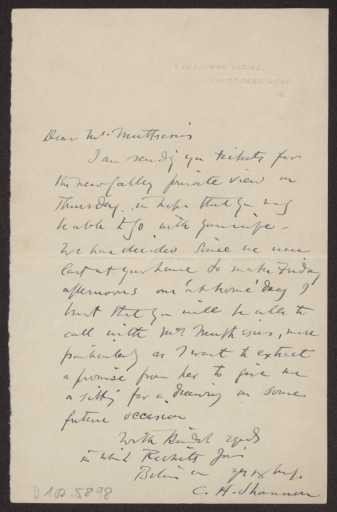 Dear Mr. Muthesius
I am sending you tickets for
the new Gallery private view on
Thursday, in hope that you may
be able to go with your wife.
We have decided since we were
last at your house to make Friday
afternoons our 'at home' day I
trust that you will be able to
call with Mrs Muthesius, more
particularly as I want to extract
a promise from her to give me
a sitting for a drawing on some
future occasion
With kindest regards
in which Ricketts joins
Believe me yrs
C. H. Shannon
D 102-5898